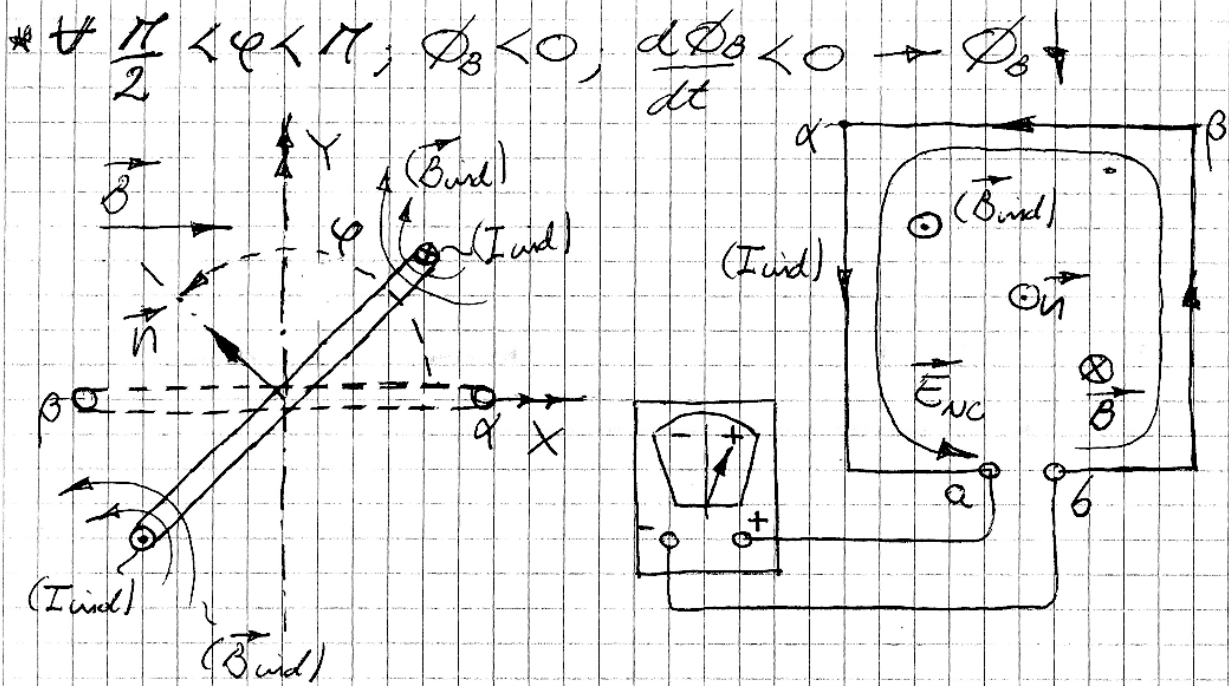 * ∀ π/2 < φ < π; Φ_B < 0; dΦ_B/dt < 0 → Φ_B ↓
Y
B⃗
(B⃗ind)
φ
(Iind)
n⃗
β
α
X
(Iind)
(B⃗ind)
α
β
(B⃗ind)
(Iind)
n⃗
E⃗_NC
B⃗
- +
- +
a
б